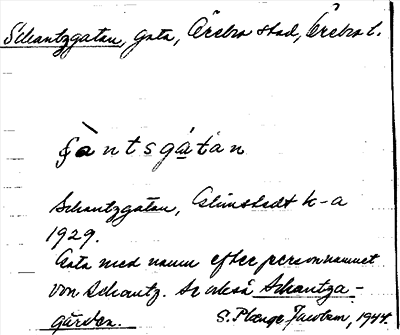 Schantzgatan, gata, Örebro stad, Örebro l.
şàntsgátàn
Schantzgatan, Almstedt k-a
1929.
Gata med namn efter personnamnet
von Schantz. Se också Schantza-
gården. S. Plænge Jacobson, 1944.